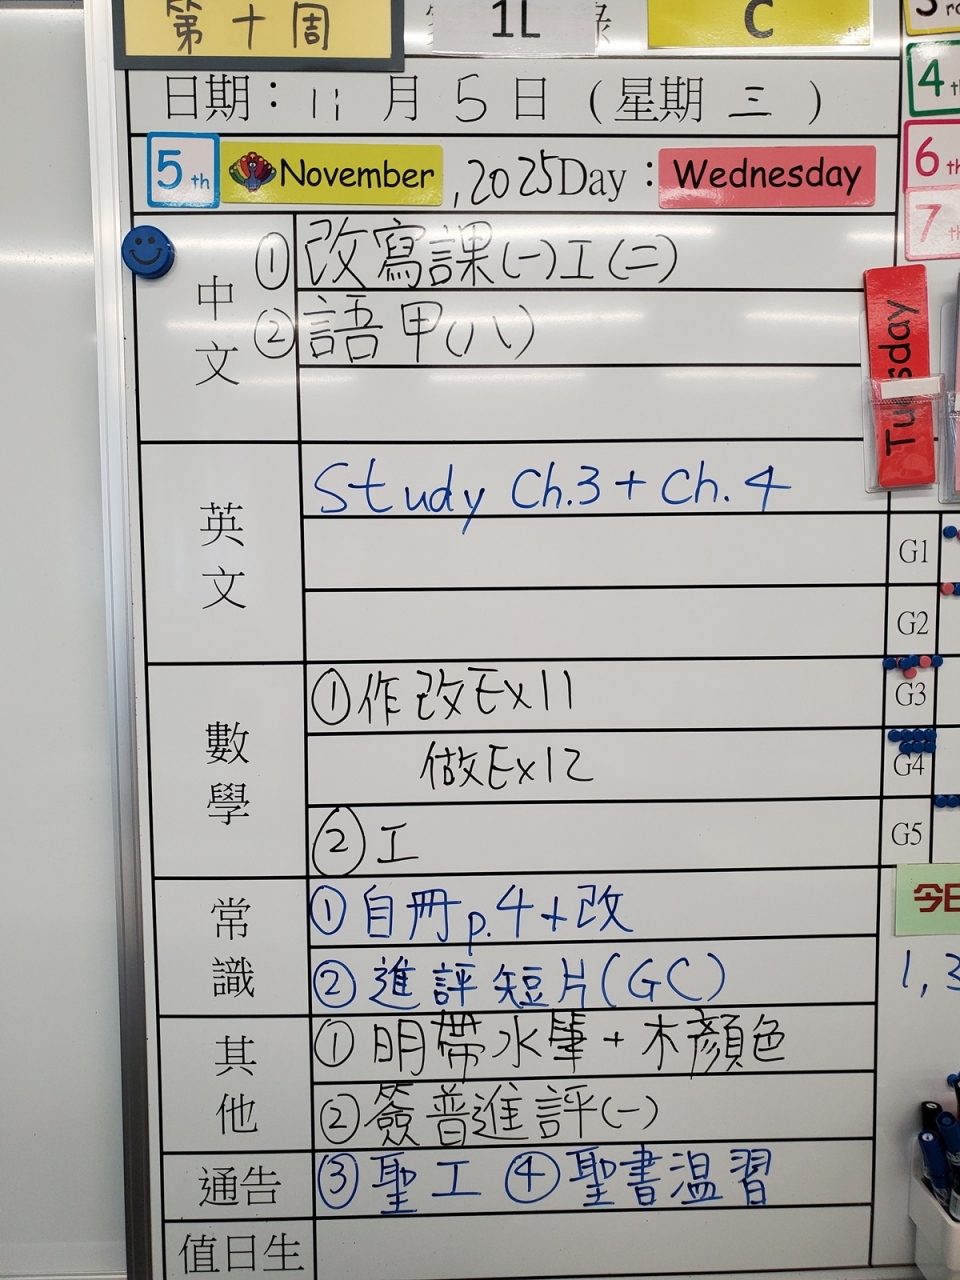 第十周
1L
C
日期：11月5日（星期三）
5th November, 2025 Day：Wednesday
中文
①改寫課(一)工(二)
②語甲(八)
英文
Study Ch.3 + Ch.4
數學
①作改Ex11
做Ex12
②工
常識
①自冊p.4+改
②進評短片(GC)
其他
①明帶水筆+木顏色
②簽普進評(一)
通告
③聖工 ④聖書温習
值日生
4th
6th
7
Tuesday
G1
G2
G3
G4
G5
今日
1,3